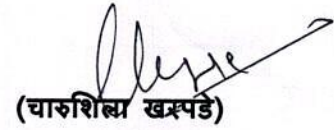 (चारुशिला खरपडे)